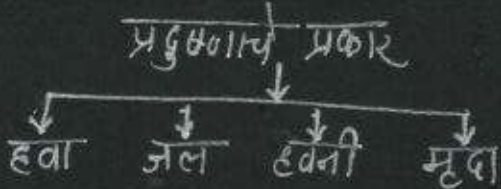 प्रदुषणाचे प्रकार
हवा जल ध्वनी मृदा